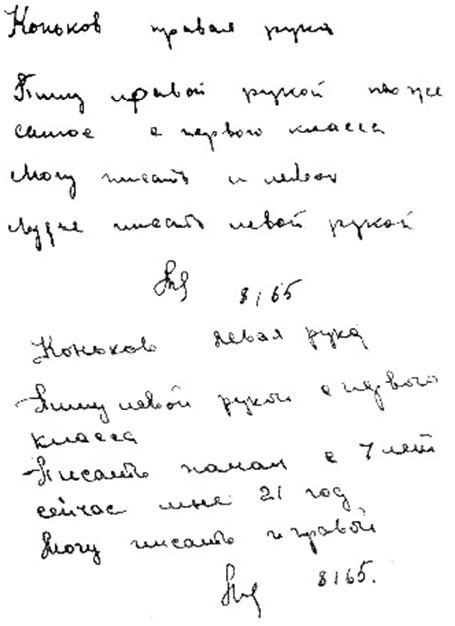 Коньков правая рука
Пишу правой рукой то же
самое с первого класса
Могу писать и левой
Лучше писать левой рукой
8/65
Коньков левая рука
Пишу левой рукой с первого
класса
Писать начал с 7 лет
сейчас мне 21 год
Могу писать и правой
8/65.